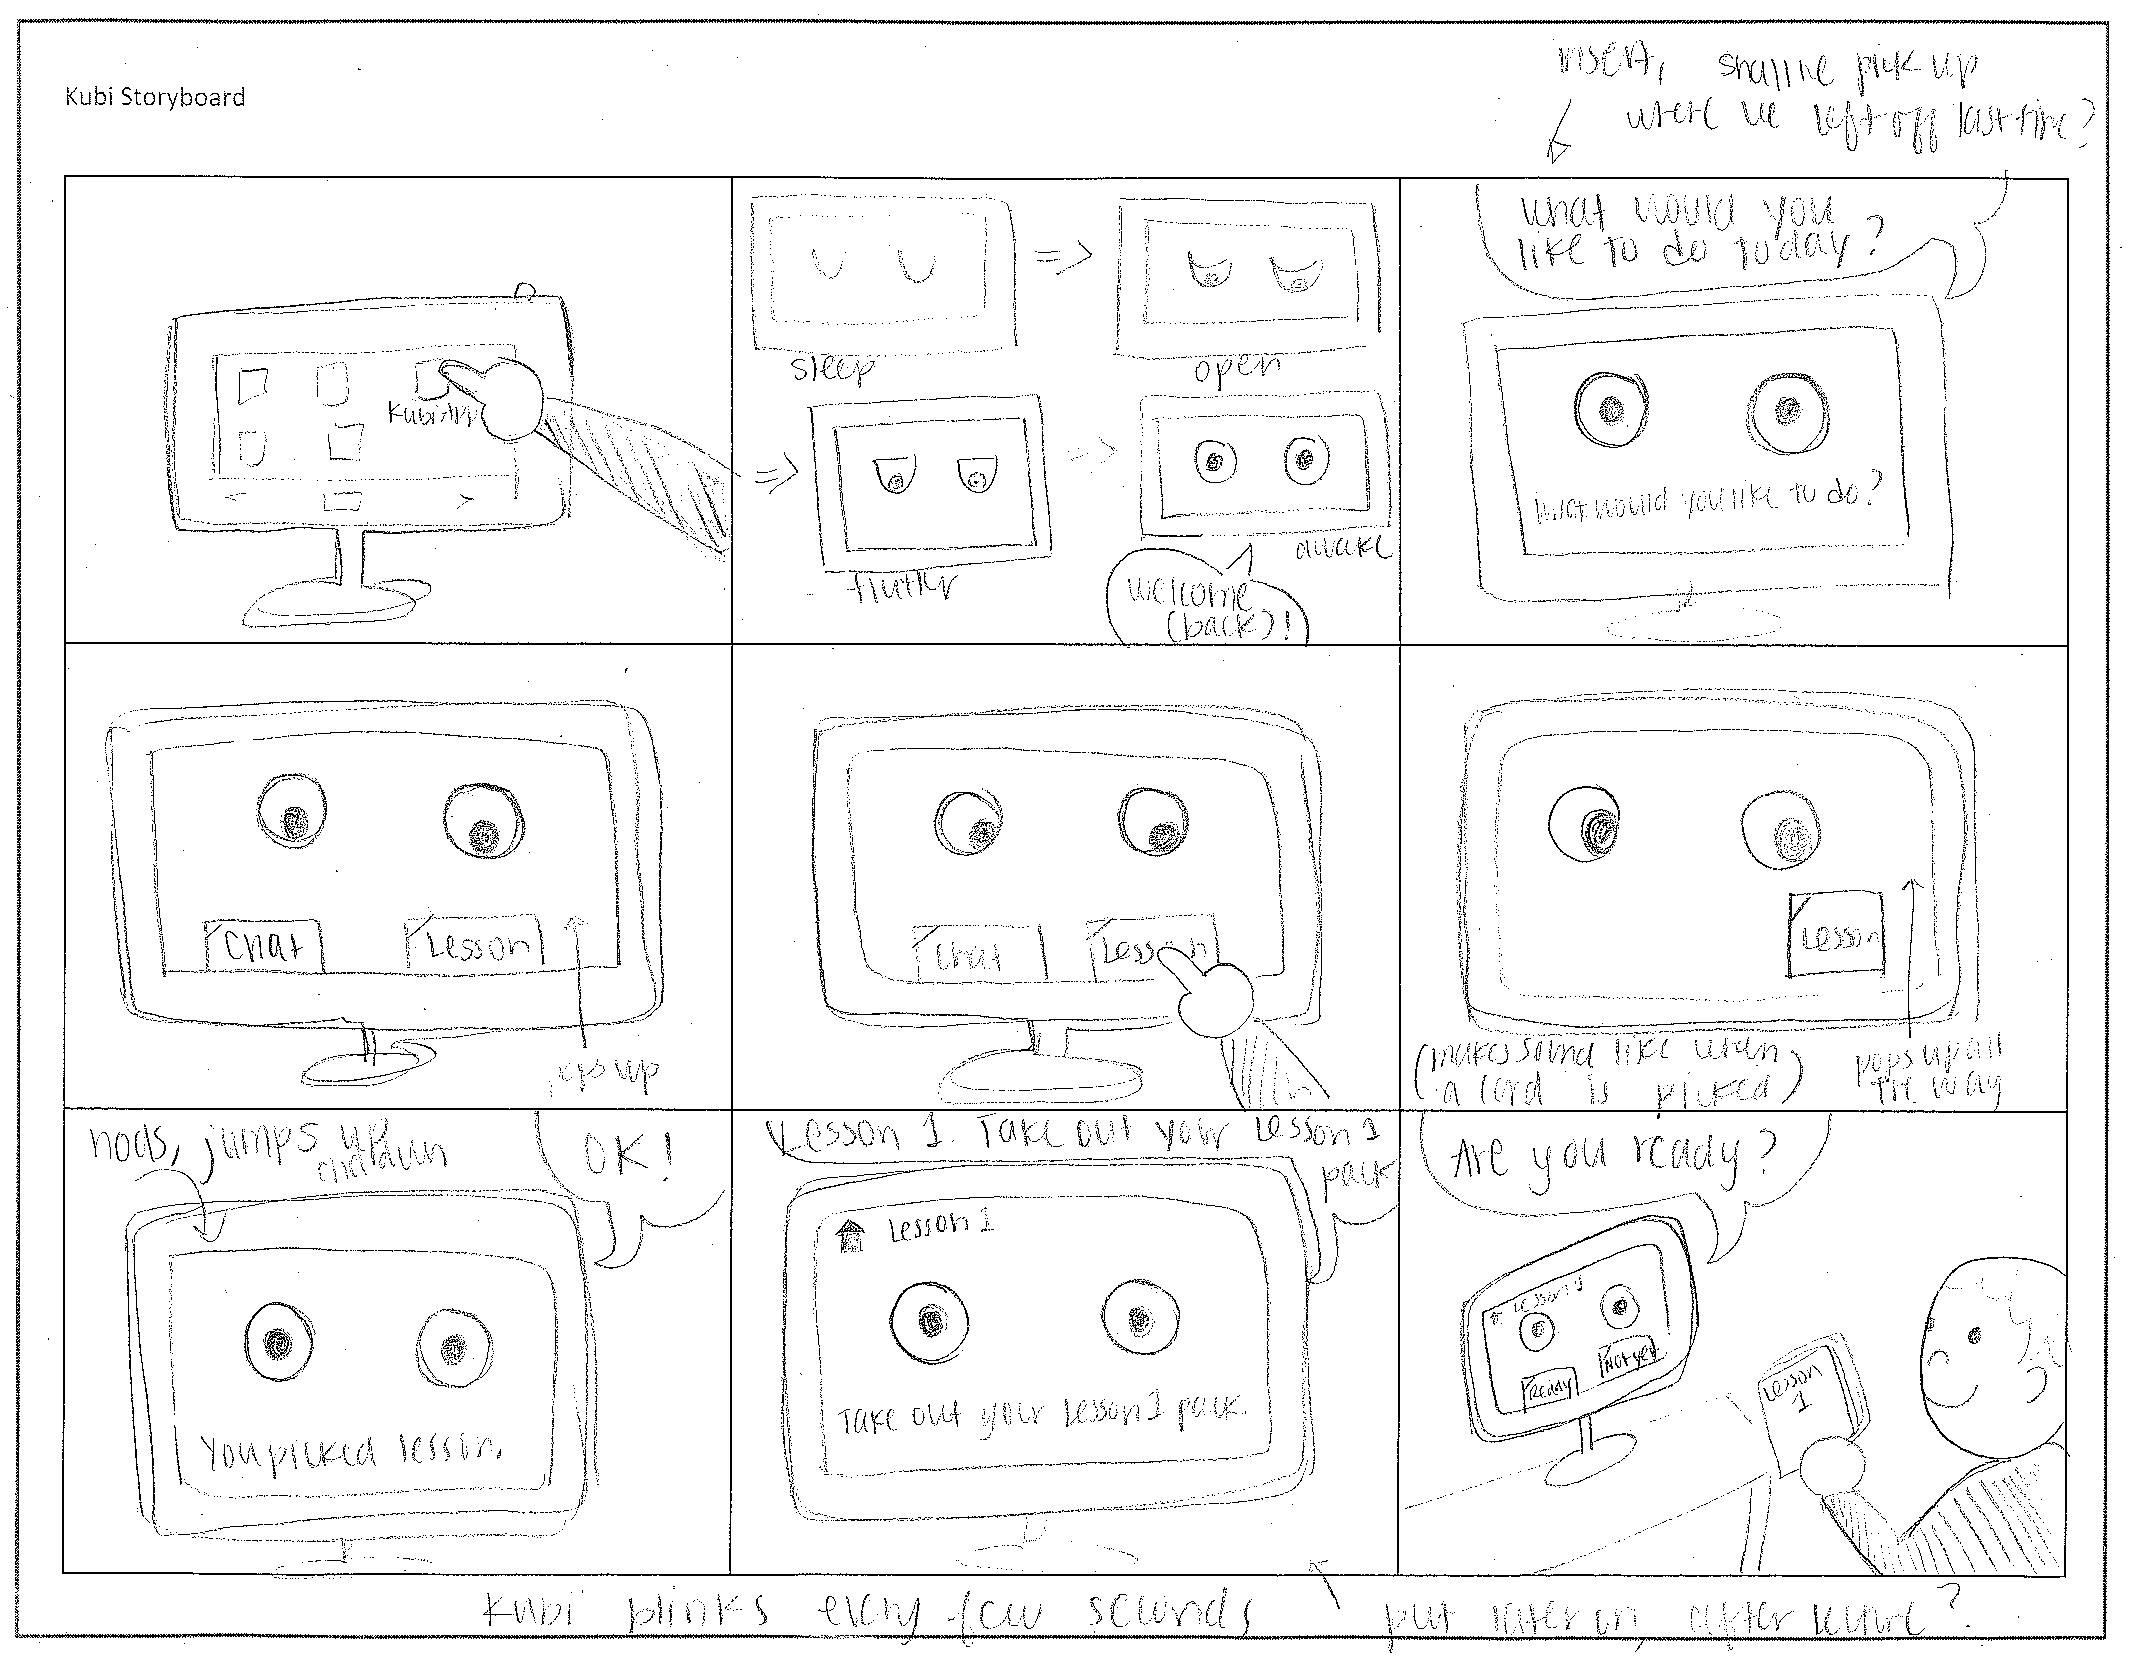 Kubi Storyboard
insert, shall we pick up
where we left off last time?
Kubi App
sleep
open
flutter
awake
welcome
(back)!
what would you
like to do today?
what would you like to do?
Chat
Lesson
pops up
Chat
Lesson
Lesson
(makes sound like when
a card is picked)
pops up all
the way
nods, jumps up
and down
OK!
You picked lesson.
Lesson 1. Take out your Lesson 1
pack
Lesson 1
Take out your Lesson 1 pack.
Are you ready?
Lesson 1
Ready
Not yet
Lesson
1
Kubi blinks every few seconds
put later on, after lecture?